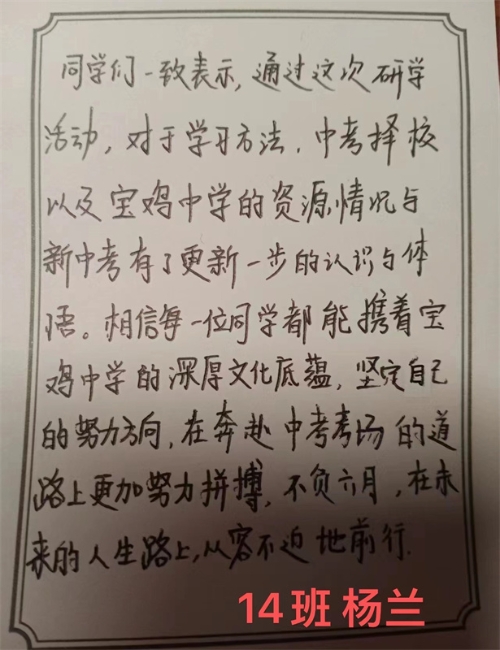 同学们一致表示，通过这次研学
活动，对于学习方法，中考择校
以及宝鸡中学的资源情况与
新中考有了更新一步的认识与体
悟。相信每一位同学都能携着宝
鸡中学的深厚文化底蕴，坚定自己
的努力方向，在奔赴中考考场的道
路上更加努力拼搏，不负六月，在未
来的人生路上，从容不迫地前行.
14班 杨兰